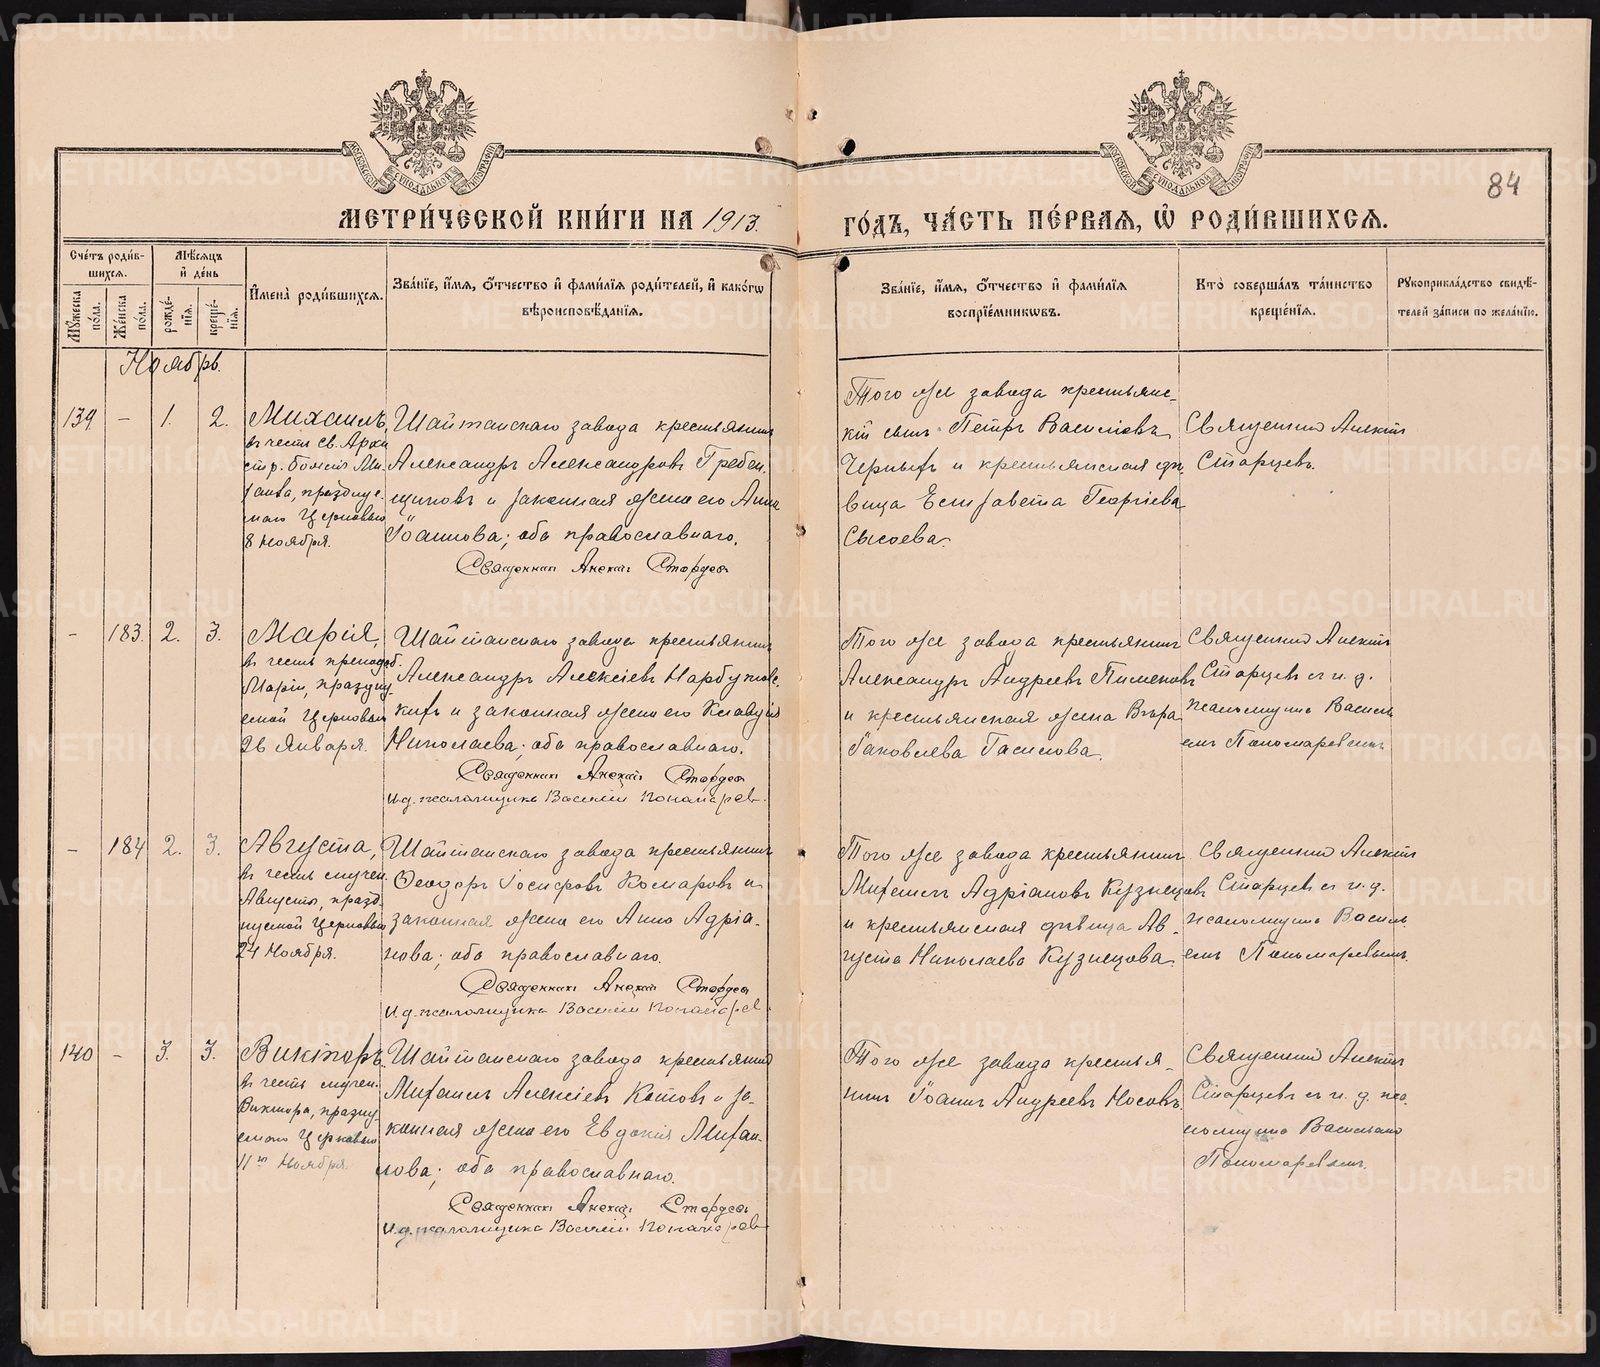 METRIKI.GASO-URAL.RU
84
МЕТРИ́ЧЕСКОЙ КНИ́ГИ НА 1913.
ГО́ДЪ, ЧА́СТЬ ПЕ́РВАЯ, Ѡ҆ РОДИ́ВШИХСЯ.
Сче́тъ роди́в-
шихся.
Мѣ́сяцъ
и҆ де́нь
Му́жеска
по́ла.
Же́нска
по́ла.
рожде́-
нїя.
креще́-
нїя.
И҆мена̀ роди́вшихся.
Зва́нїе, и҆́мя, о҆́тчество и҆ фами́лїя роди́телей, и҆ како́гѡ
вѣроисповѣ́данїя.
Зва́нїе, и҆́мя, о҆́тчество и҆ фами́лїя
воспрїе́мникѡвъ.
Кто̀ соверша́лъ та́инство
креще́нїя.
Рꙋкоприкла́дство свидѣ́-
телей за́писи по жела́нїю.
Ноябрь.
139 - 1. 2.
Михаилъ,
въ честь св. Архи
стр. Божія Ми-
хаила, празднуе-
маго Церковью
8 Ноября.
Шайтанскаго завода крестьянинъ
Александръ Александровъ Гребен-
щиковъ и законная жена его Анна
Іоаннова; оба православнаго.
Священникъ Алексій Старцевъ
Того же завода крестьянс-
кій сынъ Петръ Василіевъ
Черныхъ и крестьянская дѣ-
вица Елизавета Георгіева
Сысоева.
Священникъ Алексій
Старцевъ.
- 183. 2. 3.
Марія,
въ честь преподоб.
Маріи, праздну-
емой Церковью
26 Января.
Шайтанскаго завода крестьянинъ
Александръ Алексіевъ Нарбутовс-
кихъ и законная жена его Клавдія
Николаева; оба православнаго.
Священникъ Алексій Старцевъ
И.д. псаломщика Василій Пономаревъ.
Того же завода крестьянинъ
Александръ Андреевъ Пименовъ
и крестьянская жена Вѣра
Іаковлева Гасилова.
Священникъ Алексій
Старцевъ съ и. д.
псаломщика Василі-
емъ Пономаревымъ.
- 184 2. 3.
Августа,
въ честь мучен.
Августы, празд-
нуемой Церковью
24 Ноября.
Шайтанскаго завода крестьянинъ
Ѳеодоръ Іосифовъ Комаровъ и
законная жена его Анна Адріа-
нова; оба православнаго.
Священникъ Алексій Старцевъ
И.д. псаломщика Василій Пономаревъ.
Того же завода крестьянинъ
Михаилъ Адріановъ Кузнецовъ
и крестьянская дѣвица Ав-
густа Николаева Кузнецова.
Священникъ Алексій
Старцевъ съ и. д.
псаломщика Василі-
емъ Пономаревымъ.
140 - 3. 3.
Викторъ,
въ честь мучен.
Виктора, праздну-
емаго Церковью
11го Ноября.
Шайтанскаго завода крестьянинъ
Михаилъ Алексіевъ Котовъ и за-
конная жена его Евдокія Михаи-
лова; оба православнаго.
Священникъ Алексій Старцевъ
И.д. псаломщика Василій Пономаревъ
Того же завода крестья-
нинъ Іоаннъ Андреевъ Носовъ.
Священникъ Алексій
Старцевъ съ и. д. пса-
ломщика Василіемъ
Пономаревымъ.